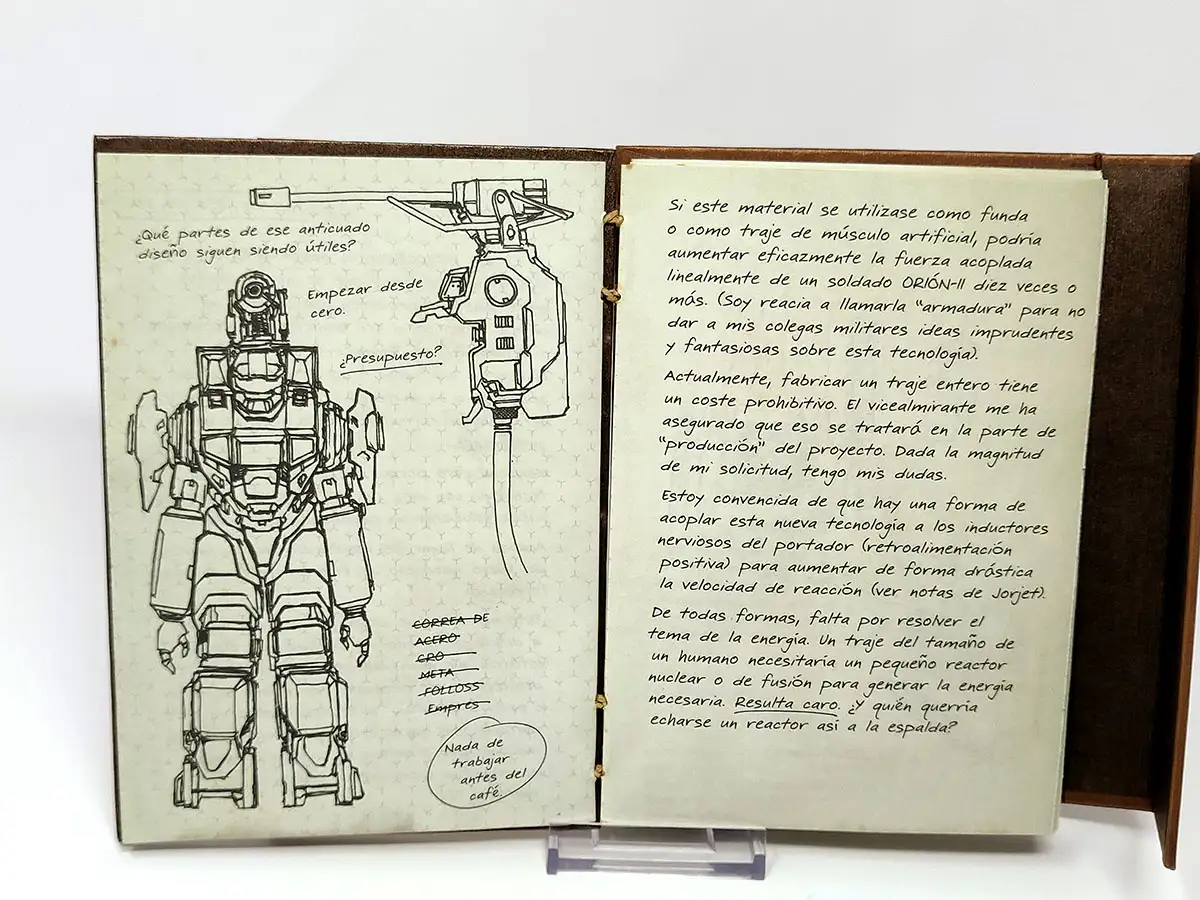 ¿Qué partes de ese anticuado
diseño siguen siendo útiles?
Empezar desde
cero.
¿Presupuesto?
CORREA DE
ACERO
GRO
META
FOLLOSS
Empres
Nada de
trabajar
antes del
café.
Si este material se utilizase como funda
o como traje de músculo artificial, podría
aumentar eficazmente la fuerza acoplada
linealmente de un soldado ORIÓN-II diez veces o
más. (Soy reacia a llamarla "armadura" para no
dar a mis colegas militares ideas imprudentes
y fantasiosas sobre esta tecnología).
Actualmente, fabricar un traje entero tiene
un coste prohibitivo. El vicealmirante me ha
asegurado que eso se tratará en la parte de
"producción" del proyecto. Dada la magnitud
de mi solicitud, tengo mis dudas.
Estoy convencida de que hay una forma de
acoplar esta nueva tecnología a los inductores
nerviosos del portador (retroalimentación
positiva) para aumentar de forma drástica
la velocidad de reacción (ver notas de Jorjet).
De todas formas, falta por resolver el
tema de la energía. Un traje del tamaño de
un humano necesitaría un pequeño reactor
nuclear o de fusión para generar la energía
necesaria. Resulta caro. ¿Y quién querría
echarse un reactor así a la espalda?